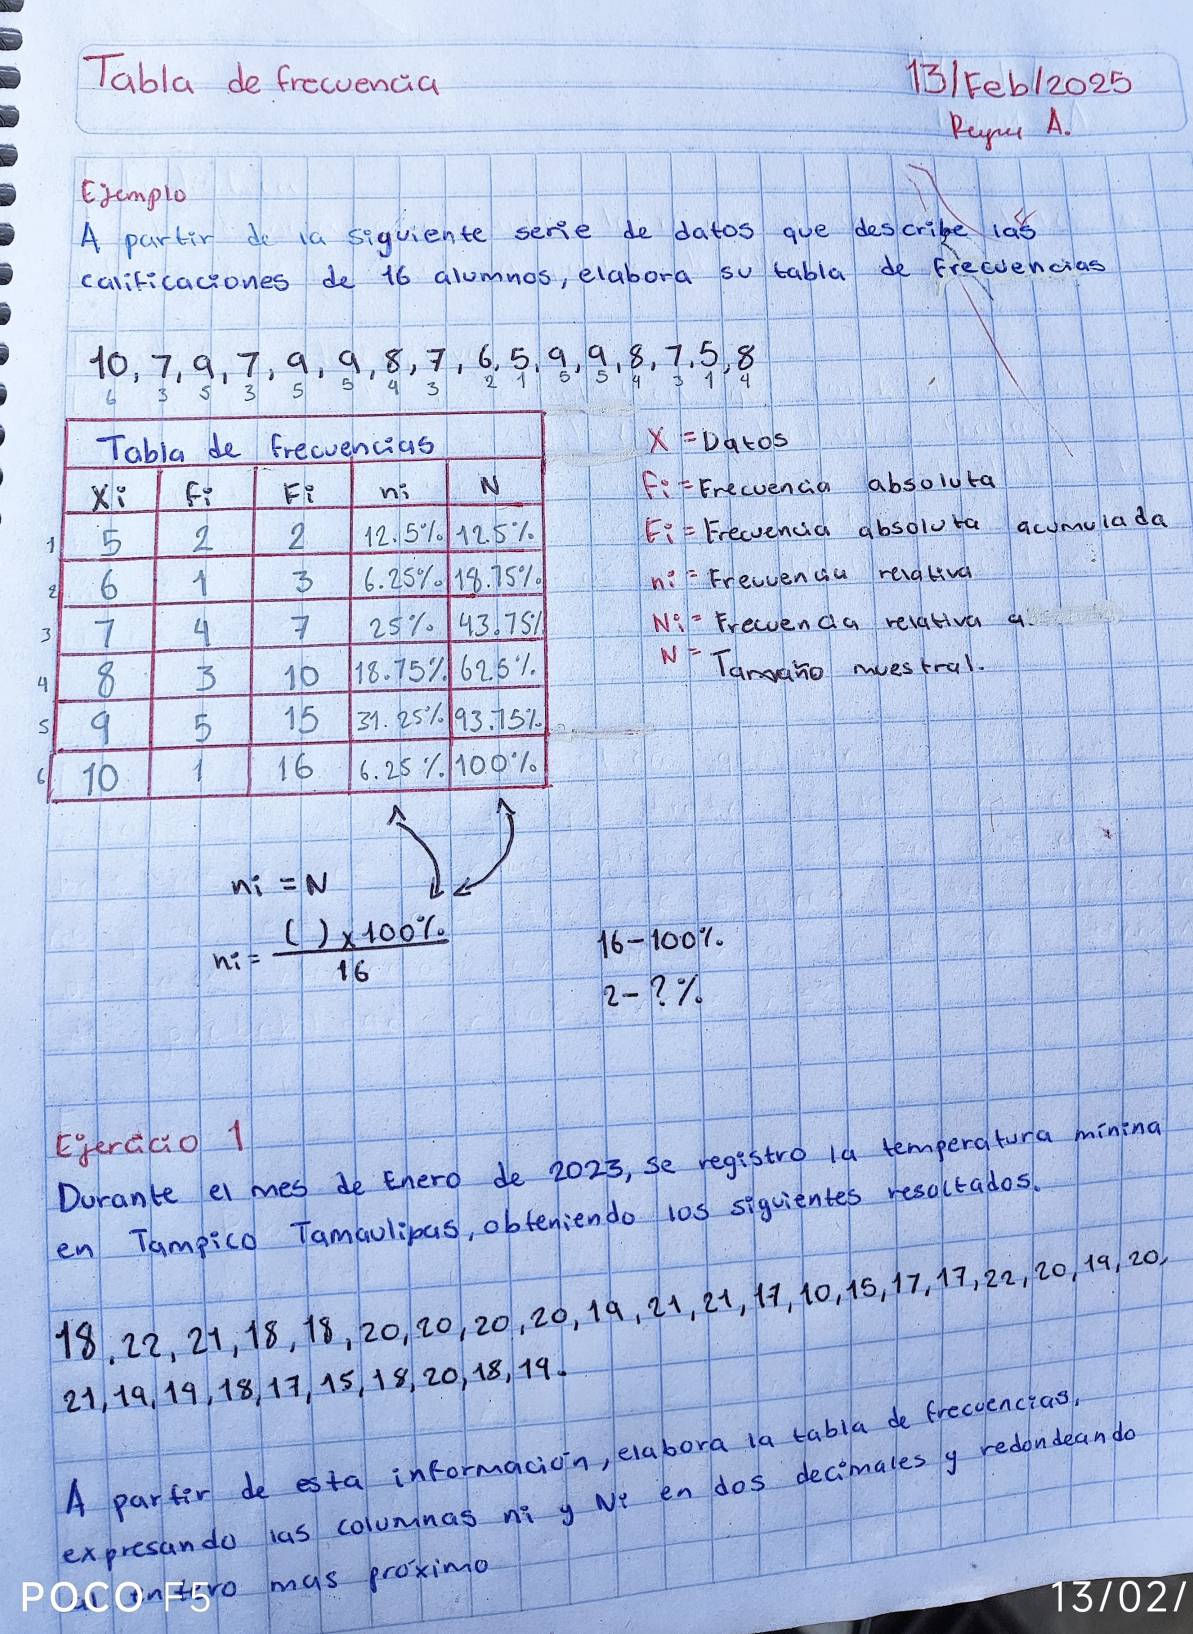 Tabla de frecuencia 13/Feb/2025
Reyes A.
Ejemplo
A partir de la siguiente serie de datos que describe las
calificaciones de 16 alumnos, elabora su tabla de frecuencias
10, 7, 9, 7, 9, 9, 8, 7, 6, 5, 9, 9, 8, 7, 5, 8
6 3 5 3 5 5 4 3 2 1 5 5 4 3 1 4
Tabla de frecuencias
Xi fi Fi ni N
1 5 2 2 12.5% 12.5%
2 6 1 3 6.25% 18.75%
3 7 4 7 25% 43.75%
4 8 3 10 18.75% 62.5%
5 9 5 15 31.25% 93.75%
6 10 1 16 6.25% 100%
X = Datos
fi = Frecuencia absoluta
Fi = Frecuencia absoluta acumulada
ni = Frecuencia relativa
Ni = Frecuencia relativa a
N = Tamaño muestral.
ni = N
ni = ( ) x 100% / 16
16 - 100%
2 - ? %
Ejercicio 1
Durante el mes de Enero de 2023, se registro la temperatura minina
en Tampico Tamaulipas, obteniendo los siguientes resoltados.
18, 22, 21, 18, 18, 20, 20, 20, 20, 19, 21, 21, 17, 10, 15, 17, 17, 22, 20, 19, 20,
21, 19, 19, 18, 17, 15, 18, 20, 18, 19.
A partir de esta información, elabora la tabla de frecuencias,
expresando las columnas ni y Ni en dos decimales y redondeando
al entero mas próximo
POCO F5 13/02/